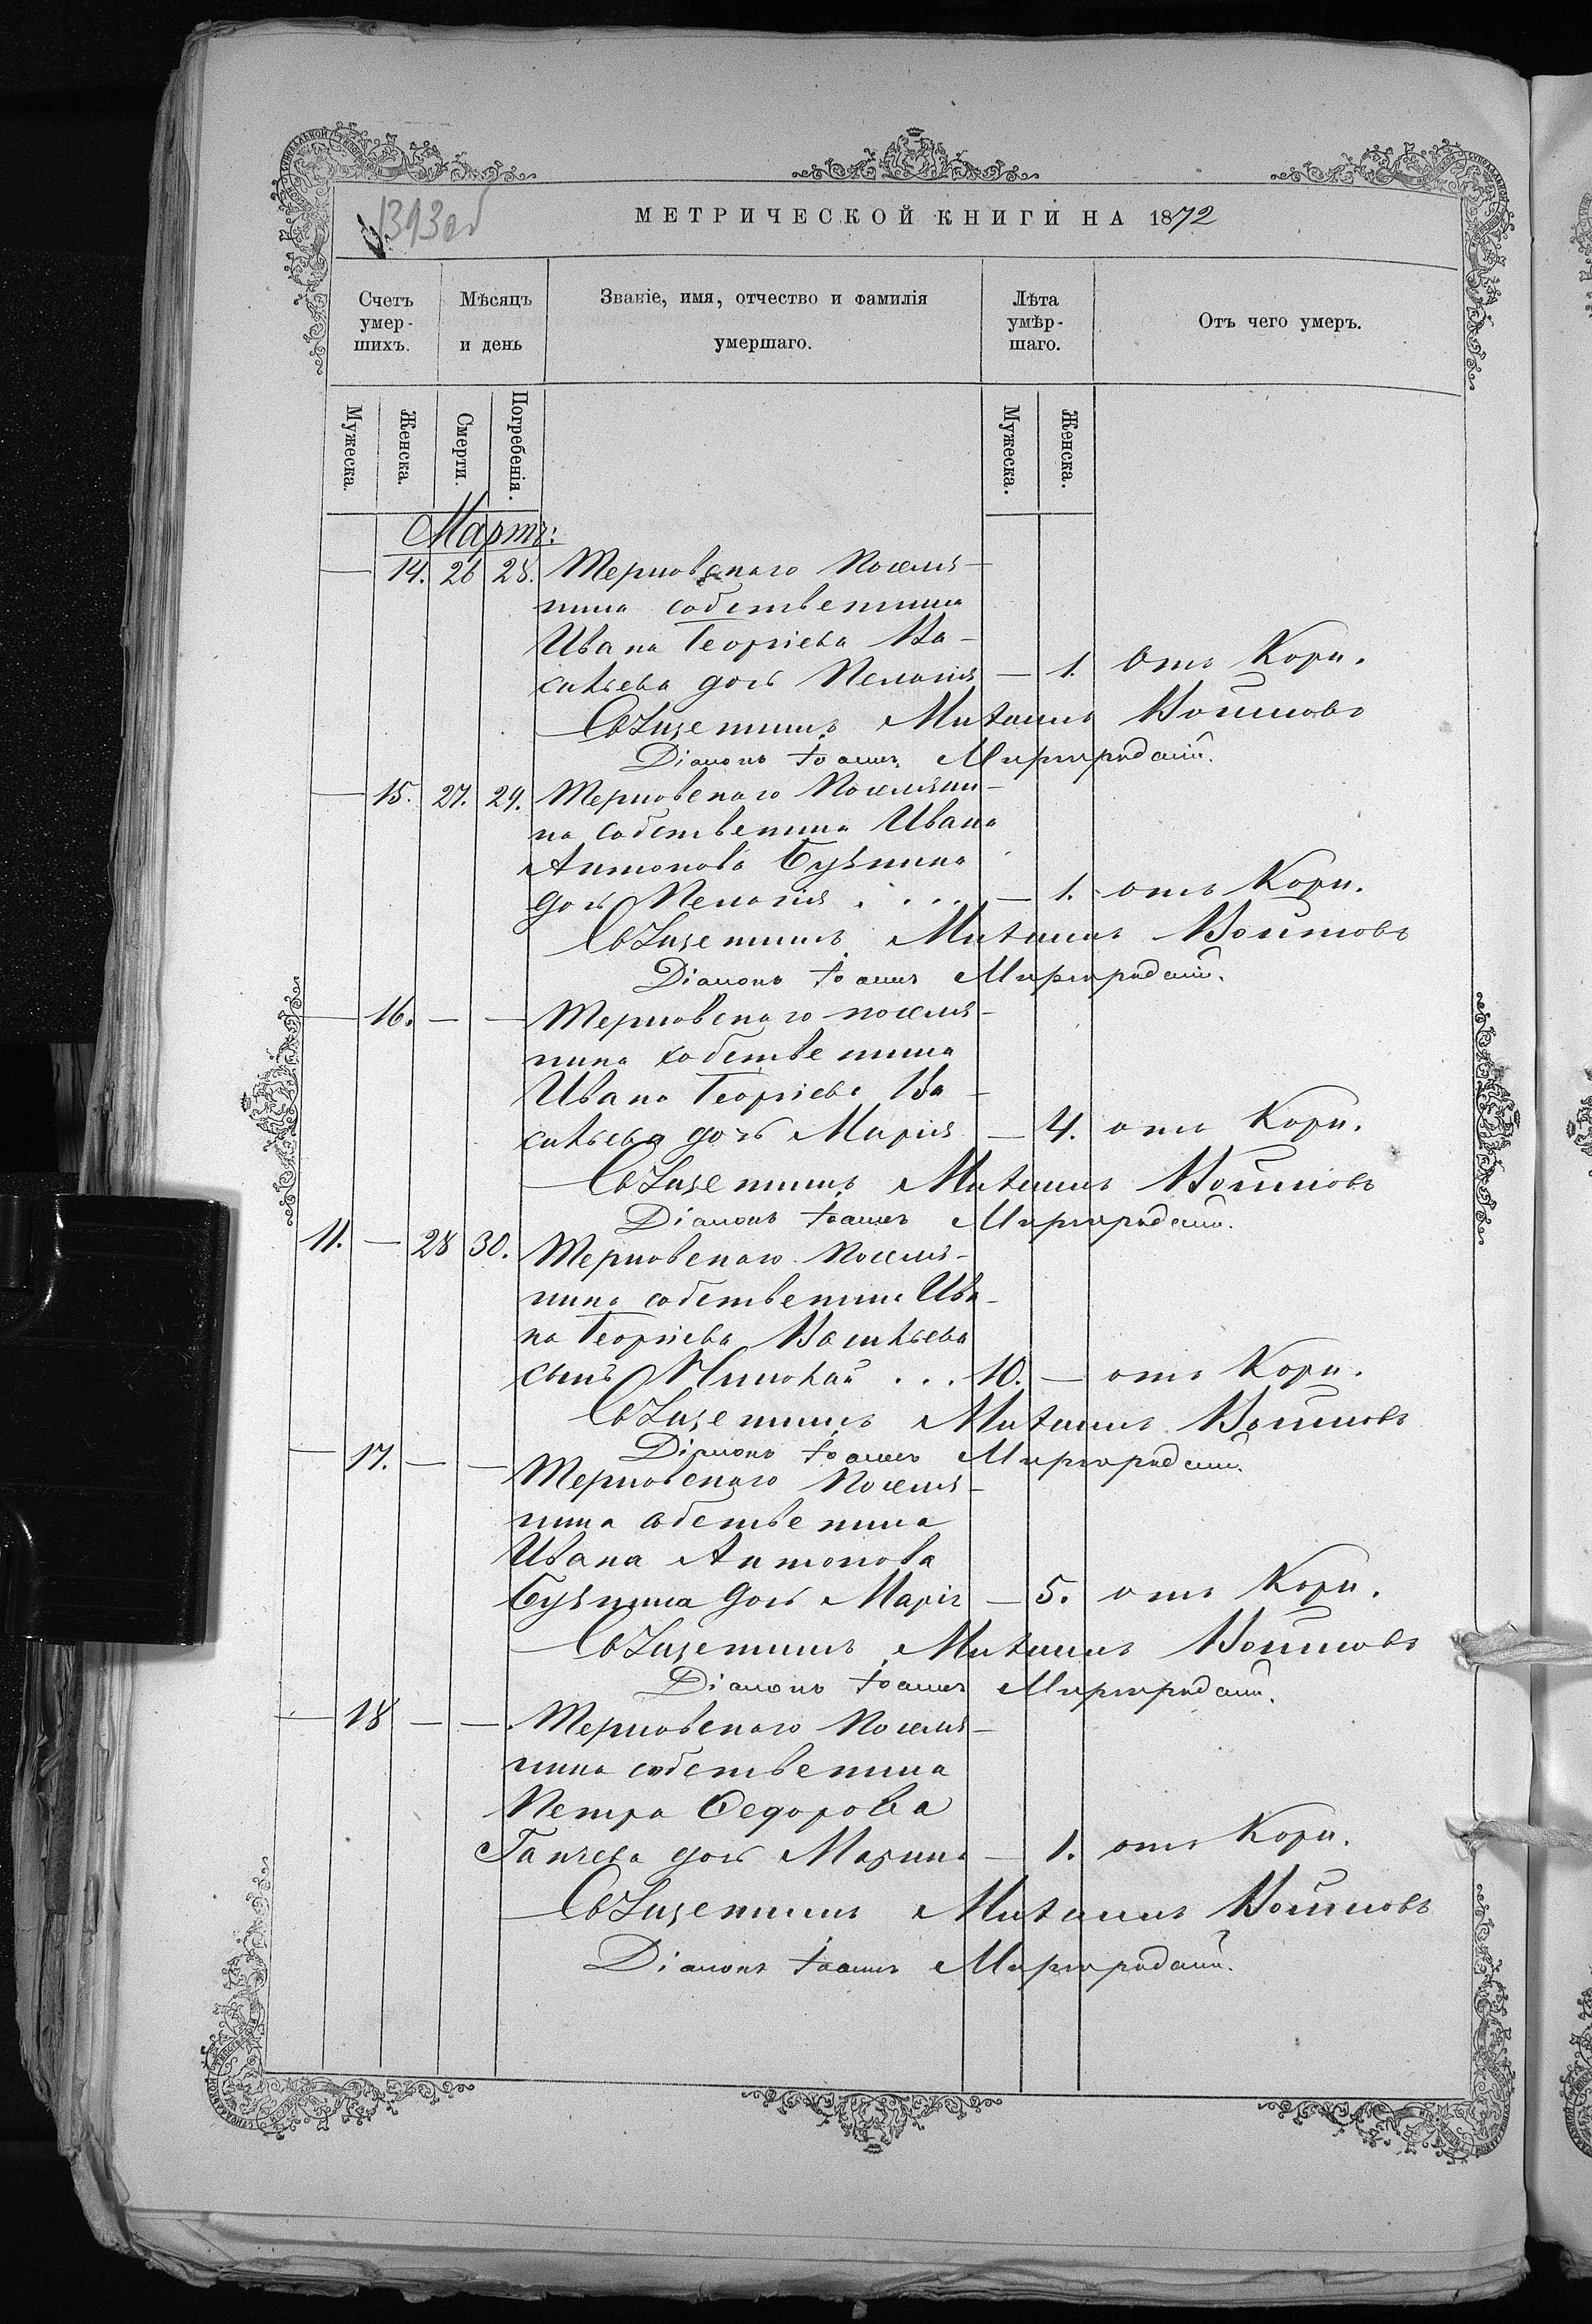 1393 об
МЕТРИЧЕСКОЙ КНИГИ НА 1872
Счетъ умер- шихъ.
Мѣсяцъ и день
Званіе, имя, отчество и фамилія умершаго.
Лѣта умѣр- шаго.
Отъ чего умеръ.
Мужеска.
Женска.
Смерти.
Погребенія.
Мужеска.
Женска.
Мартъ:
— 14. 26 28. Терновскаго Поселя-
нина собственника
Ивана Георгіева Ва-
сильева дочь Пелагія — 1. Отъ Кори.
Священникъ Михаилъ Войновъ
Діаконъ Іоаннъ Миргородскій.
— 15. 27. 29. Терновскаго Поселяни-
на собственника Ивана
Антонова
дочь Пелагія . . . . — 1. отъ Кори.
Священникъ Михаилъ Войновъ
Діаконъ Іоаннъ Миргородскій.
— 16. — — Терновскаго поселя-
нина собственника
Ивана Георгіева Ва-
сильева дочь Марія — 4. отъ Кори.
Священникъ Михаилъ Войновъ
Діаконъ Іоаннъ Миргородскій.
11. — 28 30. Терновскаго Поселя-
нина собственника Ива-
на Георгіева Васильева
сынъ Николай . . . 10. — отъ Кори.
Священникъ Михаилъ Войновъ
Діаконъ Іоаннъ Миргородскій.
— 17. — — Терновскаго Поселя-
нина собственника
Ивана Антонова
дочь Марія — 5. отъ Кори.
Священникъ Михаилъ Войновъ
Діаконъ Іоаннъ Миргородскій.
— 18 — — Терновскаго Поселя-
нина собственника
Петра Ѳедорова
Ганчева дочь Марина — 1. отъ Кори.
Священникъ Михаилъ Войновъ
Діаконъ Іоаннъ Миргородскій.